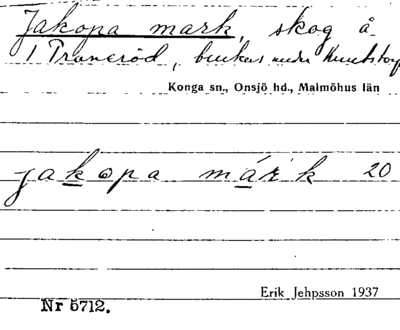 Jakopa mark, skog å
1 Traneröd, brukas under Knutstorp
Konga sn., Onsjö hd., Malmöhus län
jakopa márk 20
Erik Jehpsson 1937
Nr 5712.